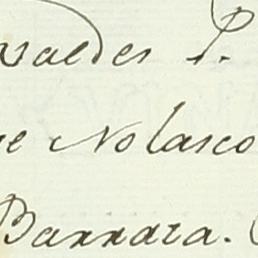 valdes P.
e Nolasco
Barrara.